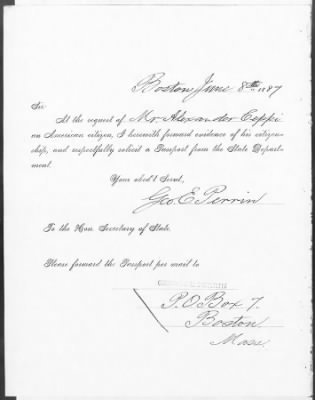 Boston, June 8th 1887
Sir
At the request of Mr. Alexander Ceppi
an American citizen, I herewith forward evidence of his citizen-
ship, and respectfully solicit a Passport from the State Depart-
ment.
Your obed't Servt,
Geo. E. Perrin
To the Hon. Secretary of State.
Please forward the Passport per mail to
P.O. Box 7.
Boston
Mass.